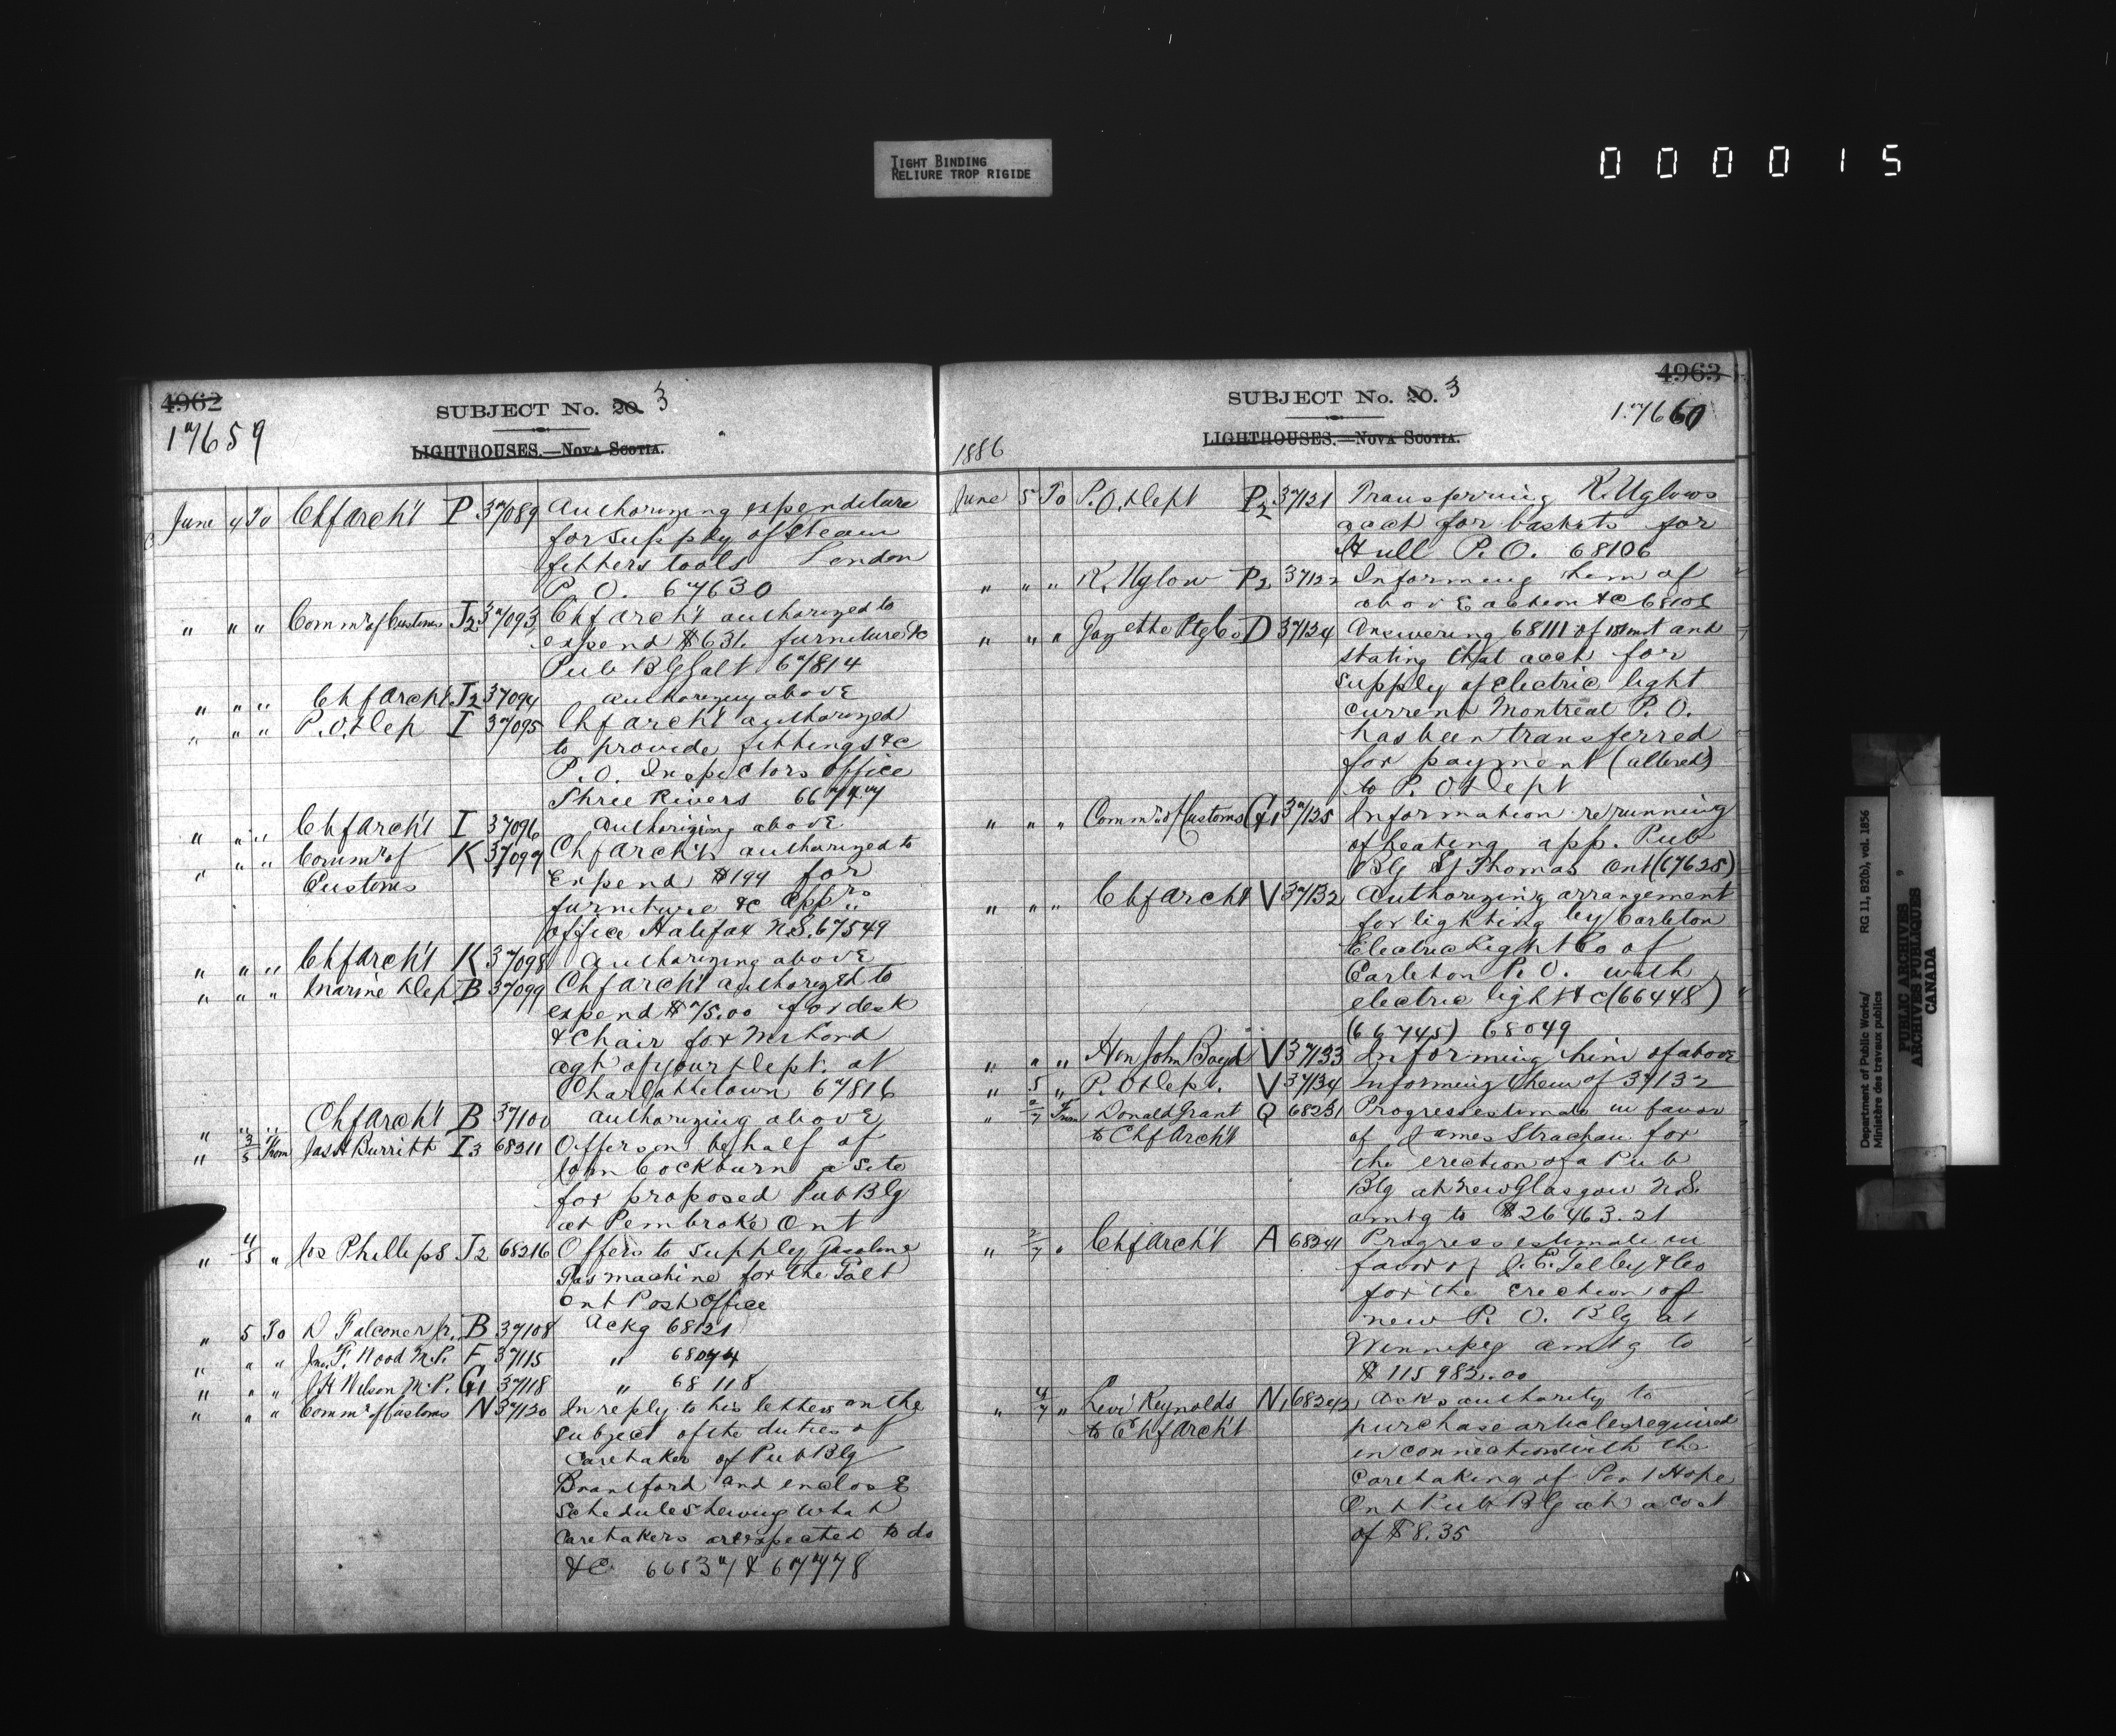 TIGHT BINDING
RELIURE TROP RIGIDE
000015
4962
17659
SUBJECT No. 20. 3
LIGHTHOUSES.—NOVA SCOTIA.
June 4 To Chf Arch't P 37089 Authorizing expenditure
for supply of steam
fitters tools London
P. O. 67630
" " " Commr of Customs J2 37093 Chf Arch't authorized to
expend $631. furniture &c
Pub Blg Galt 67814
" " " Chf Arch't J2 37094 authorizing above
" " " P. O. Dep I 37095 Chf Arch't authorized
to provide fittings &c
P. O. Inspectors office
Three Rivers 66747
" " " Chf Arch't I 37096 Authorizing above
" " " Commr of K 37097 Chf Arch't authorized to
Customs expend $194 for
furniture &c App'rs
office Halifax N.S. 67549
" " " Chf Arch't K 37098 authorizing above
" " " Marine Dep B 37099 Chf Arch't authorized to
expend $75.00 for desk
& Chair for Mr Lord
agt of your Dept. at
Charlottetown 67816
" " " Chf Arch't B 37100 authorizing above
" 3/5 From Jas H Burritt I3 68211 Offers on behalf of
John Cockburn a site
for proposed Pub Blg
at Pembroke Ont
" 4/5 " Jos Phillips J2 68216 Offers to supply Gasoline
Gas machine for the Galt
Ont Post Office
" 5 To D Falconer Jr. B 37108 Ackg 68121
" " " Jno. F. Wood M.P. F 37115 " 68074
" " " J H Wilson M.P. G1 37118 " 68118
" " " Commr of Customs N 37120 In reply to his letters on the
subject of the duties of
Caretaker of Pub Blg
Brantford and enclose
schedule shewing what
Caretakers are expected to do
&c 66837 & 67778
4963
17660
SUBJECT No. 20. 3
LIGHTHOUSES.—NOVA SCOTIA.
1886
June 5 To P. O. Dept P2 37121 Transferring R. Uglows
acct for baskets for
Hull P. O. 68106
" " " R. Uglow P2 37122 Informing him of
above action &c 68106
" " " Gazette Ptg Co D 37124 Answering 68111 of 1st inst and
stating that acct for
supply of electric light
current Montreal P. O.
has been transferred
for payment (altered)
to P. O. Dept
" " " Commr of Customs G1 37125 Information re running
of heating app. Pub
Blg St Thomas Ont (67625)
" " " Chf Arch't V 37132 Authorizing arrangement
for lighting by Carleton
Electric Light Co of
Carleton P. O. with
electric light &c (66448)
(66745) 68049
" " " Hon John Boyd V 37133 Informing him of above
" 5 " P. O. Dept. V 37134 Informing them of 37132
" 2/7 From Donald Grant Q 68231 Progress estimate in favor
to Chf Arch't of James Strachan for
the erection of a Pub
Blg at New Glasgow N.S.
amtg to $26463.21
" 2/7 " Chf Arch't A 68241 Progress estimate in
favor of J. E. Gelley & Co
for the erection of
new P. O. Blg at
Winnipeg amtg to
$115982.00
" 4/7 " Levi Reynolds N1 68242 Asks authority to
to Chf Arch't purchase articles required
in connection with the
Caretaking of Port Hope
Ont Pub Blg at a cost
of $8.35
Department of Public Works/
Ministère des travaux publics
RG 11, B2(b), vol. 1856
PUBLIC ARCHIVES
ARCHIVES PUBLIQUES
CANADA